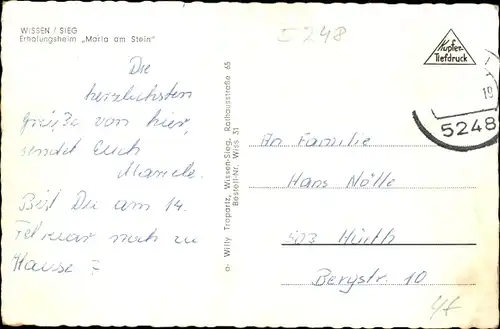 WISSEN / SIEG
Erholungsheim „Maria am Stein"
Die
herzlichsten
Grüße von hier,
sendet Euch
Bist Du am 14.
Februar noch zu
Hause?
a- Willy Tropartz, Wissen-Sieg, Rathausstraße 65
Bestell-Nr. Wiss 31
I 248
Kupfer-
Tiefdruck
5248
An Familie
Hans Nölle
503 Hürth
Bergstr. 10